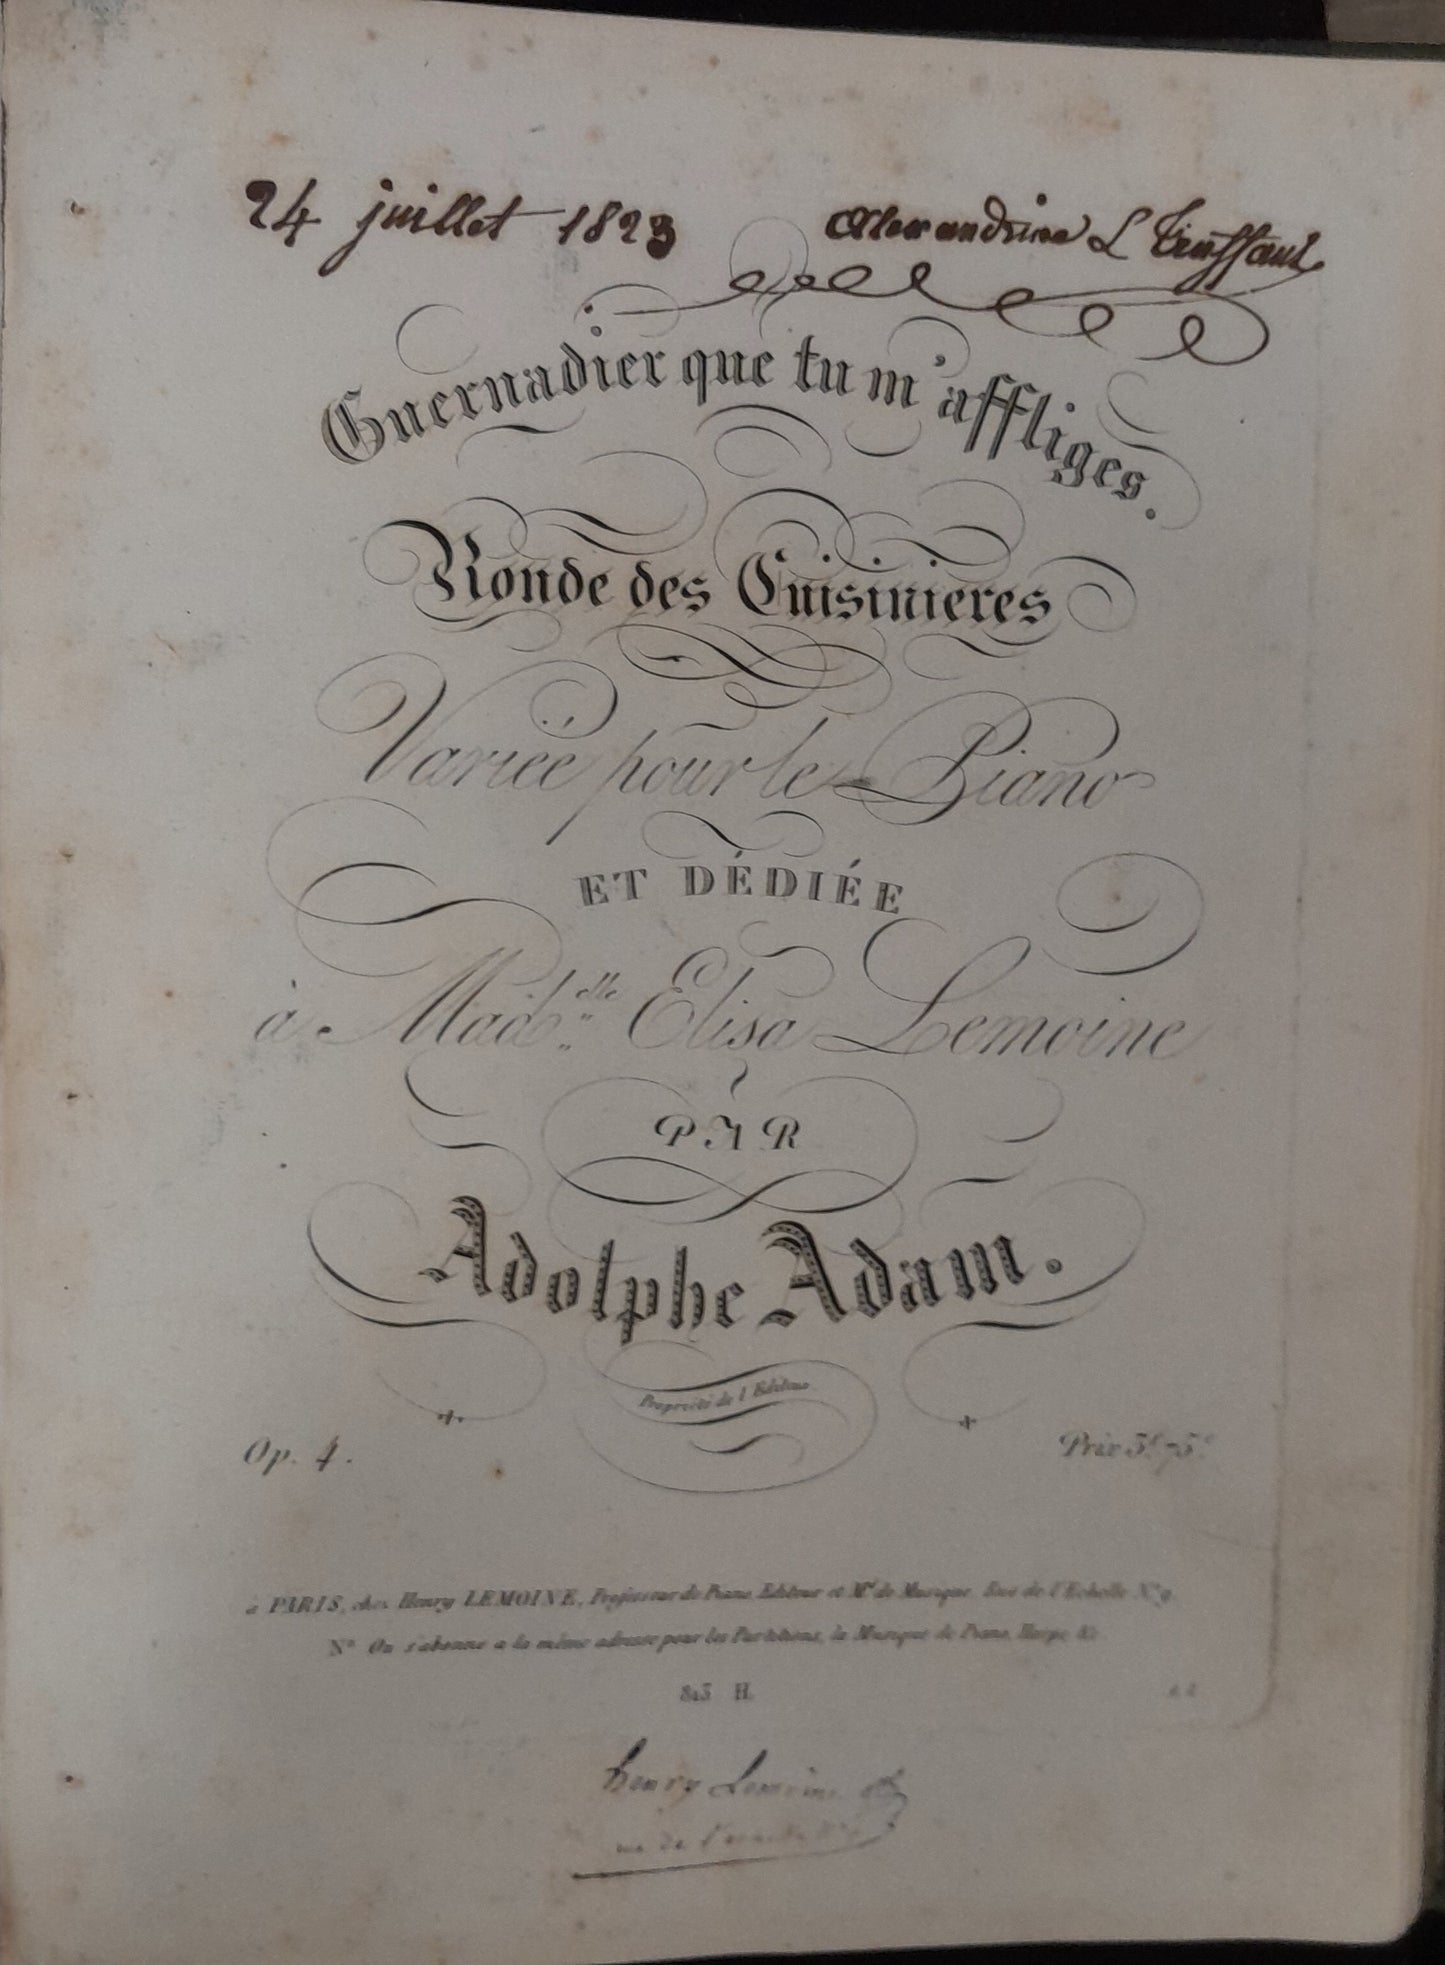 24 juillet 1823 Alexandrine L Truffaut
Guernadier que tu m'affliges.
Ronde des Cuisinieres
Variée pour le Piano
ET DÉDIÉE
à Mad.elle Elisa Lemoine
PAR
Adolphe Adam.
Propriété de l'Editeur
Op. 4. Prix 3f. 75c.
à PARIS, chez Henry LEMOINE, Professeur de Piano, Editeur et Md. de Musique, Rue de l'Echelle No. 9.
Na. On s'abonne a la même adresse pour les Partitions, la Musique de Piano, Harpe, &c.
843 H.
Henry Lemoine
rue de l'echelle No. 9